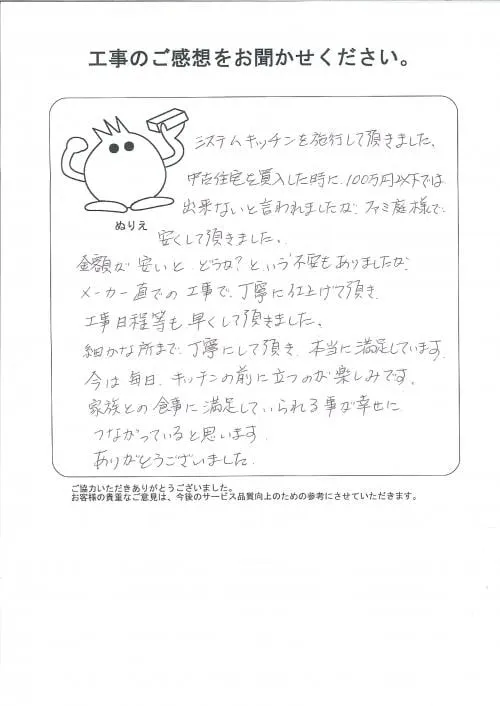 工事のご感想をお聞かせください。
システムキッチンを施行して頂きました、
中古住宅を買入した時に、100万円以下では
出来ないと言われましたが、ファミ庭様で、
安くして頂きました、
ぬりえ
金額が安いと、どうな?という不安もありましたが、
メーカー直での工事で、丁寧に仕上げて頂き、
工事日程等も早くして頂きました、
細かな所まで、丁寧にして頂き、本当に満足しています。
今は毎日、キッチンの前に立つのが楽しみです。
家族との食事に満足していられる事が幸せに
つながっていると思います。
ありがとうございました.
ご協力いただきありがとうございました。
お客様の貴重なご意見は、今後のサービス品質向上のための参考にさせていただきます。